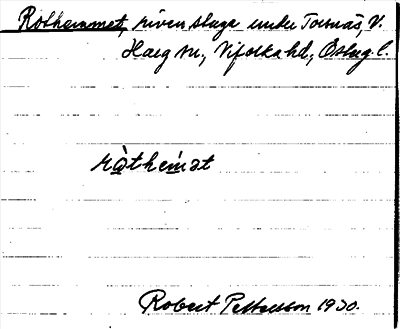 Rothemmet, riven stuga under Tornäs, V.
Harg sn, Vifolka hd, Östug. l.
ràthem̀ət
Robert Pettersson 1930.